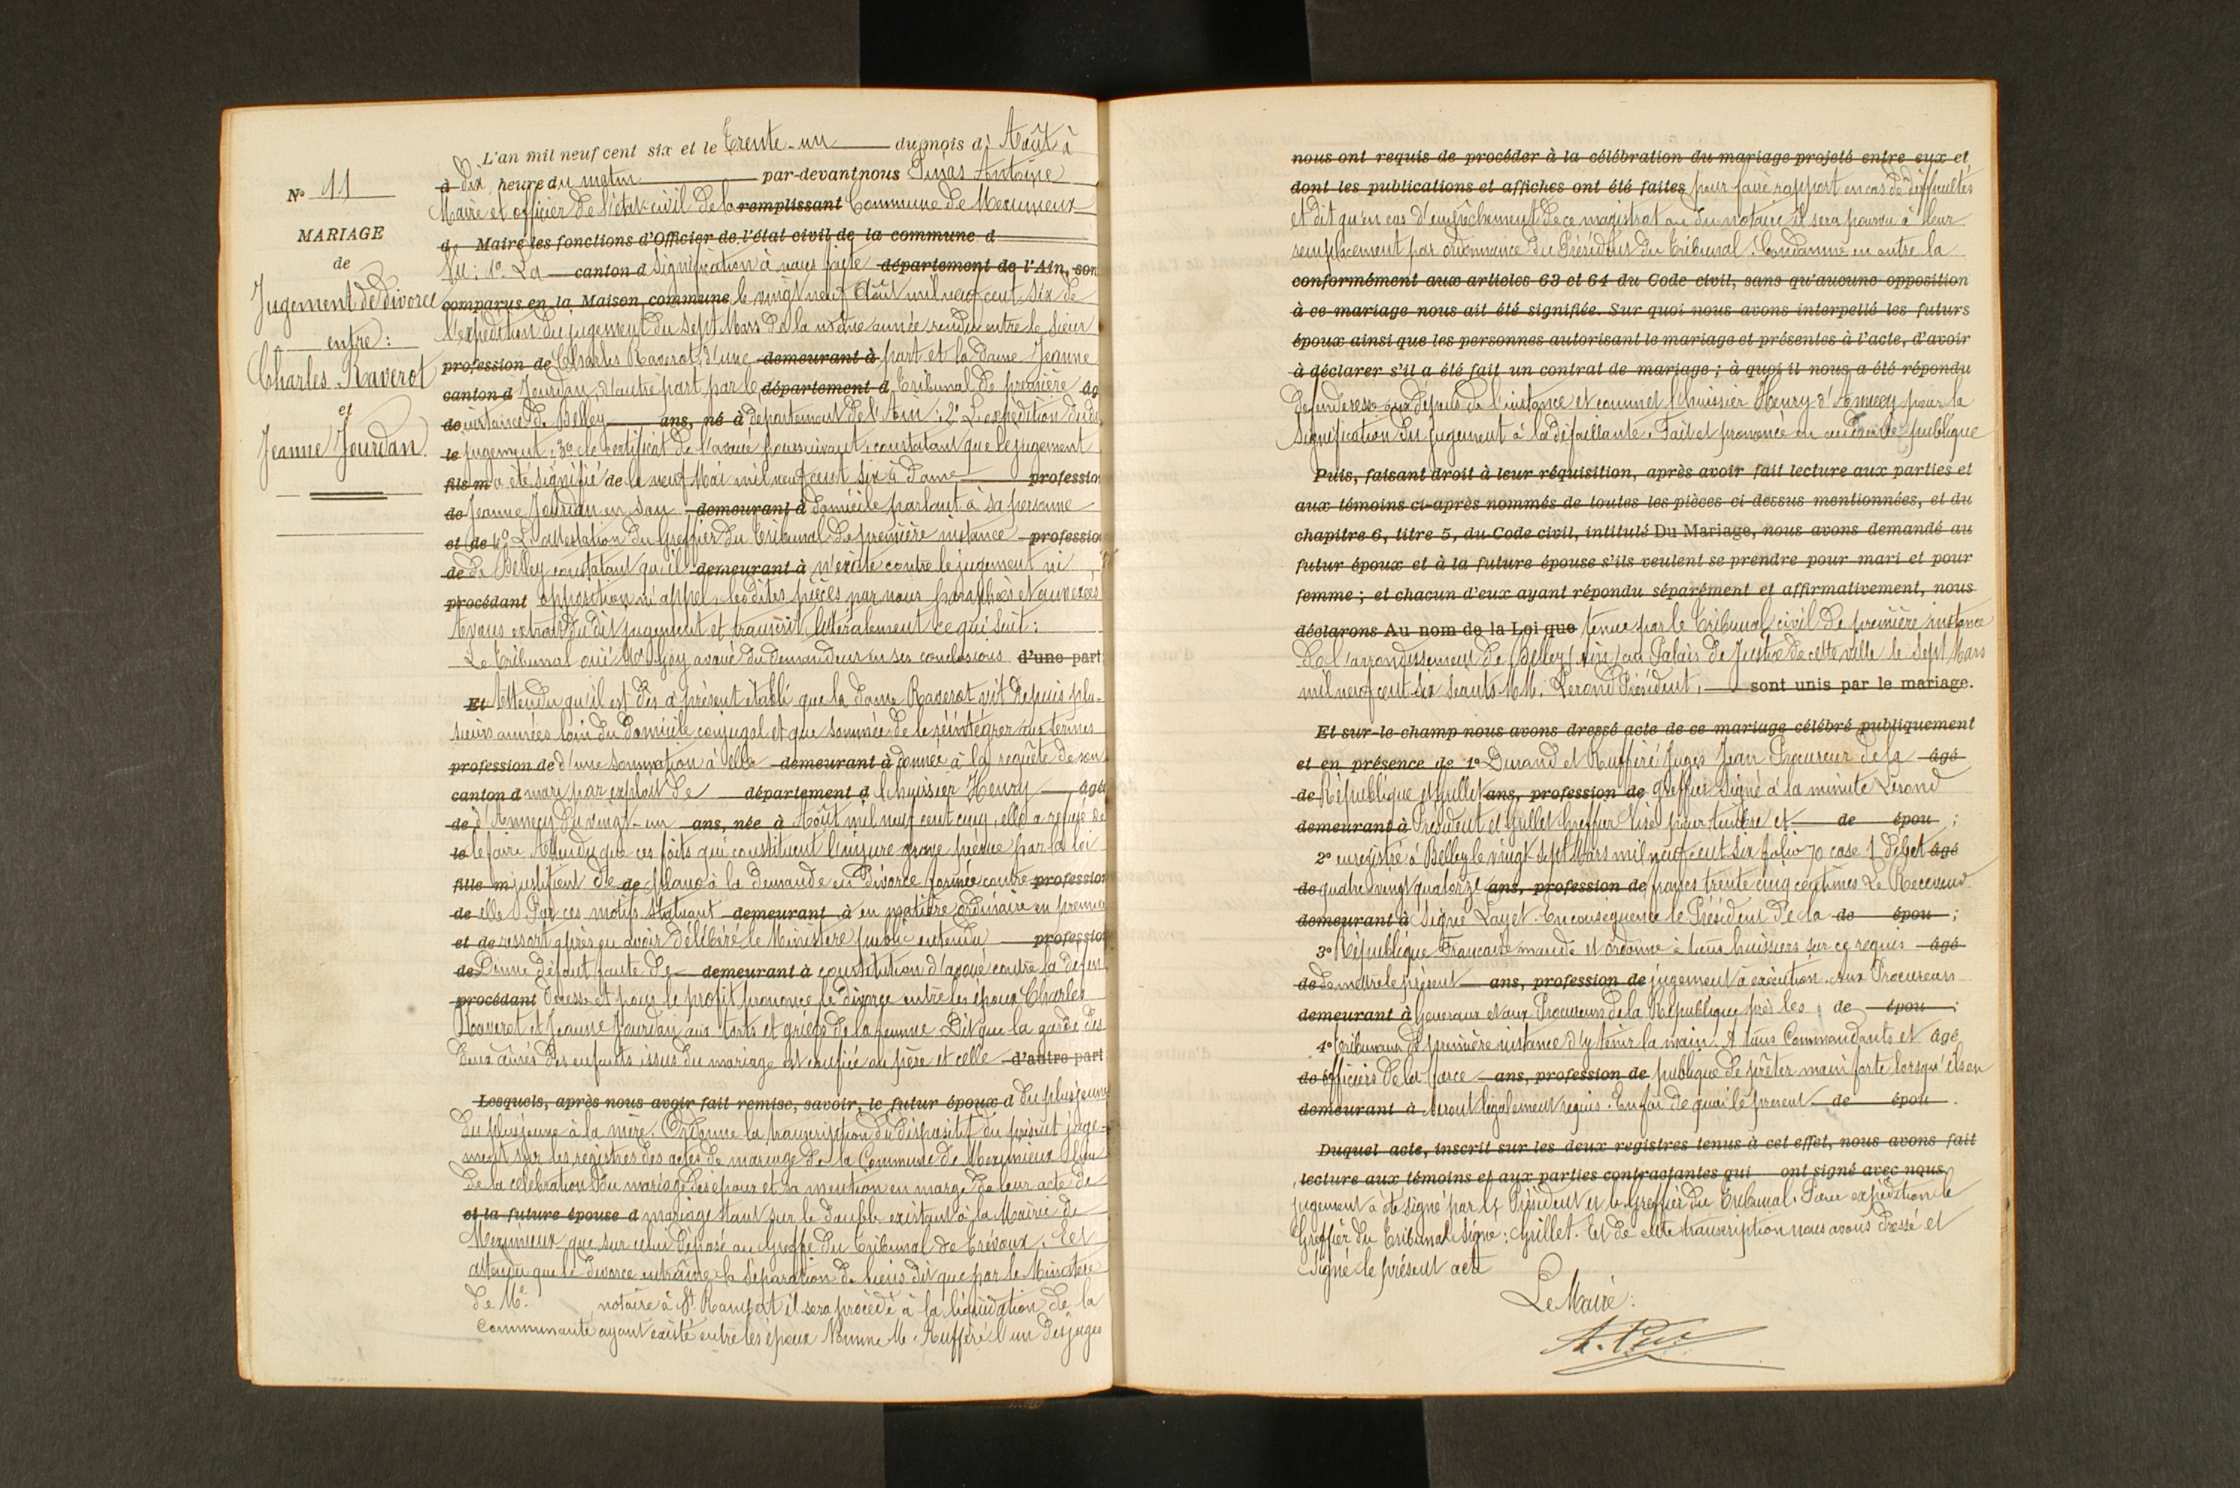 L'an mil neuf cent six et le Trente-un du mois d'Août à
à Dix heure du matin par-devant nous Pinas Antoine
Maire et officier de l'état-civil de la remplissant Commune de Meximieux
d Maire les fonctions d'Officier de l'état civil de la commune d
Vu: 1o La canton d signification à nous faite département de l'Ain, son
comparus en la Maison commune le vingt neuf Août mil neuf cent six de
l'expédition du jugement du sept Mars de la même année rendu entre le Sieur
profession de Charles Raverot, d'une demeurant à part et la dame Jeanne
canton d Jourdan, d'autre part par le département d Tribunal de première âg
de instance de Belley ans, né à département de l'Ain; 2o L'expédition du dit
le jugement; 3o le certificat de l'avoué poursuivant, constatant que le jugement
fils m a été signifié de le neuf Mai mil neuf cent six à dame profession
de Jeanne Jourdan en son demeurant à domicile parlant à sa personne
et de 4o L'attestation du Greffier du Tribunal de première instance profession
de de Belley constatant qu'il demeurant à n'existe contre le jugement ni
procédant opposition ni appel, lesdites pièces par nous paraphées et annexées
Avons extrait du dit jugement et transcrit littéralement ce qui suit:
Le Tribunal ouï Me avoué du demandeur en ses conclusions d'une part
Et Attendu qu'il est dès à présent établi que la dame Raverot vit depuis plu-
sieurs années loin du domicile conjugal et que sommée de le réintégrer aux termes
profession de d'une sommation à elle demeurant à donnée à la requête de son
canton d mari par exploit de département d l'huissier Henry âgée
de d'Annecy du vingt-un ans, née à Août mil neuf cent cinq, elle a refusé de
le le faire Attendu que ces faits qui constituent l'injure grave prévue par la loi
fille m justifient de de plano à la demande en divorce formée contre profession
de elle Par ces motifs Statuant demeurant à en matière ordinaire en premier
et de ressort après en avoir délibéré le Ministère public entendu profession
de Donne défaut faute de demeurant à constitution d'avoué contre la défen
procédant deresse et pour le profit prononce le divorce entre les époux Charles
Raverot et Jeanne Jourdan aux torts et griefs de la femme Dit que la garde des
deux aînés des enfants issus du mariage est confiée au père et celle d'autre part
Lesquels, après nous avoir fait remise, savoir, le futur époux d du plus jeune
du plus jeune à la mère. Ordonne la transcription du dispositif du présent juge-
ment sur les registres des actes de mariage de la Commune de Meximieux lieu
de la célébration du mariage des époux et sa mention en marge de leur acte de
et la future épouse d mariage tant sur le double existant à la Mairie de
Meximieux que sur celui déposé au Greffe du Tribunal de Trévoux. Et
attendu que le divorce entraîne la séparation de biens dit que par le Ministère
de Me notaire à St Rambert il sera procédé à la liquidation de la
communauté ayant existé entre les époux Nomme M. Rufféré l'un des juges
No 11
MARIAGE
de
Jugement de divorce
entre:
Charles Raverot
et
Jeanne Jourdan
nous ont requis de procéder à la célébration du mariage projeté entre eux et
dont les publications et affiches ont été faites pour faire rapport en cas de difficultés
et dit qu'en cas d'empêchement de ce magistrat ou du notaire il sera pourvu à leur
remplacement par ordonnance du Président du Tribunal. Condamne en outre la
conformément aux articles 63 et 64 du Code civil, sans qu'aucune opposition
à ce mariage nous ait été signifiée. Sur quoi nous avons interpellé les futurs
époux ainsi que les personnes autorisant le mariage et présentes à l'acte, d'avoir
à déclarer s'il a été fait un contrat de mariage; à quoi il nous a été répondu
défenderesse aux dépens de l'instance et commet l'huissier Henry d'Annecy pour la
signification du jugement à la défaillante. Fait et prononcé en audience publique
Puis, faisant droit à leur réquisition, après avoir fait lecture aux parties et
aux témoins ci-après nommés de toutes les pièces ci-dessus mentionnées, et du
chapitre 6, titre 5, du Code civil, intitulé Du Mariage, nous avons demandé au
futur époux et à la future épouse s'ils veulent se prendre pour mari et pour
femme; et chacun d'eux ayant répondu séparément et affirmativement, nous
déclarons Au nom de la Loi que tenue par le Tribunal civil de première instance
de l'arrondissement de Belley (Ain) au Palais de Justice de cette ville le sept Mars
mil neuf cent six seants MM. Lerond Président, sont unis par le mariage.
Et sur-le-champ nous avons dressé acte de ce mariage célébré publiquement
et en présence de 1o Durand et Rufféré Juges Jean Procureur de la âgé
de République et Grillet ans, profession de greffier Signé à la minute Lerond
demeurant à Président et Grillet greffier Visé pour timbre et de épou ;
2o enregistré à Belley le vingt sept Mars mil neuf cent six folio 70 case 1 débet âgé
de quatre vingt quatorze ans, profession de francs trente cinq centimes Le Receveur
demeurant à Signé Layet. En conséquence le Président de la de épou ;
3o République Française mande et ordonne à tous huissiers sur ce requis âgé
de de mettre le présent ans, profession de jugement à exécution. Aux Procureurs
demeurant à généraux et aux Procureurs de la République près les de épou ;
4o Tribunaux de première instance d'y tenir la main. A tous Commandants et âgé
de officiers de la force ans, profession de publique de prêter main forte lorsqu'ils en
demeurant à seront légalement requis. En foi de quoi le présent de épou .
Duquel acte, inscrit sur les deux registres tenus à cet effet, nous avons fait
lecture aux témoins et aux parties contractantes qui ont signé avec nous
jugement a été signé par le Président et le Greffier du Tribunal. Pour expédition le
Greffier du Tribunal Signé: Grillet. Et de cette transcription nous avons dressé et
signé le présent acte
Le Maire: